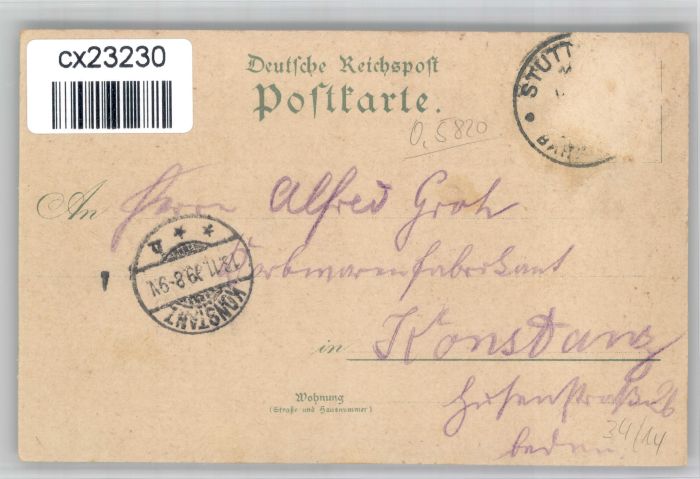 cx23230
Deutsche Reichspost
Postkarte.
STUTT
0,5820
An Herrn Alfred Groh
Korbwarenfabrikant
in Konstanz
KONSTANZ
11.99.8-9N.
Wohnung
(Straße und Hausnummer)
Husenstraße 26
34/14
baden.